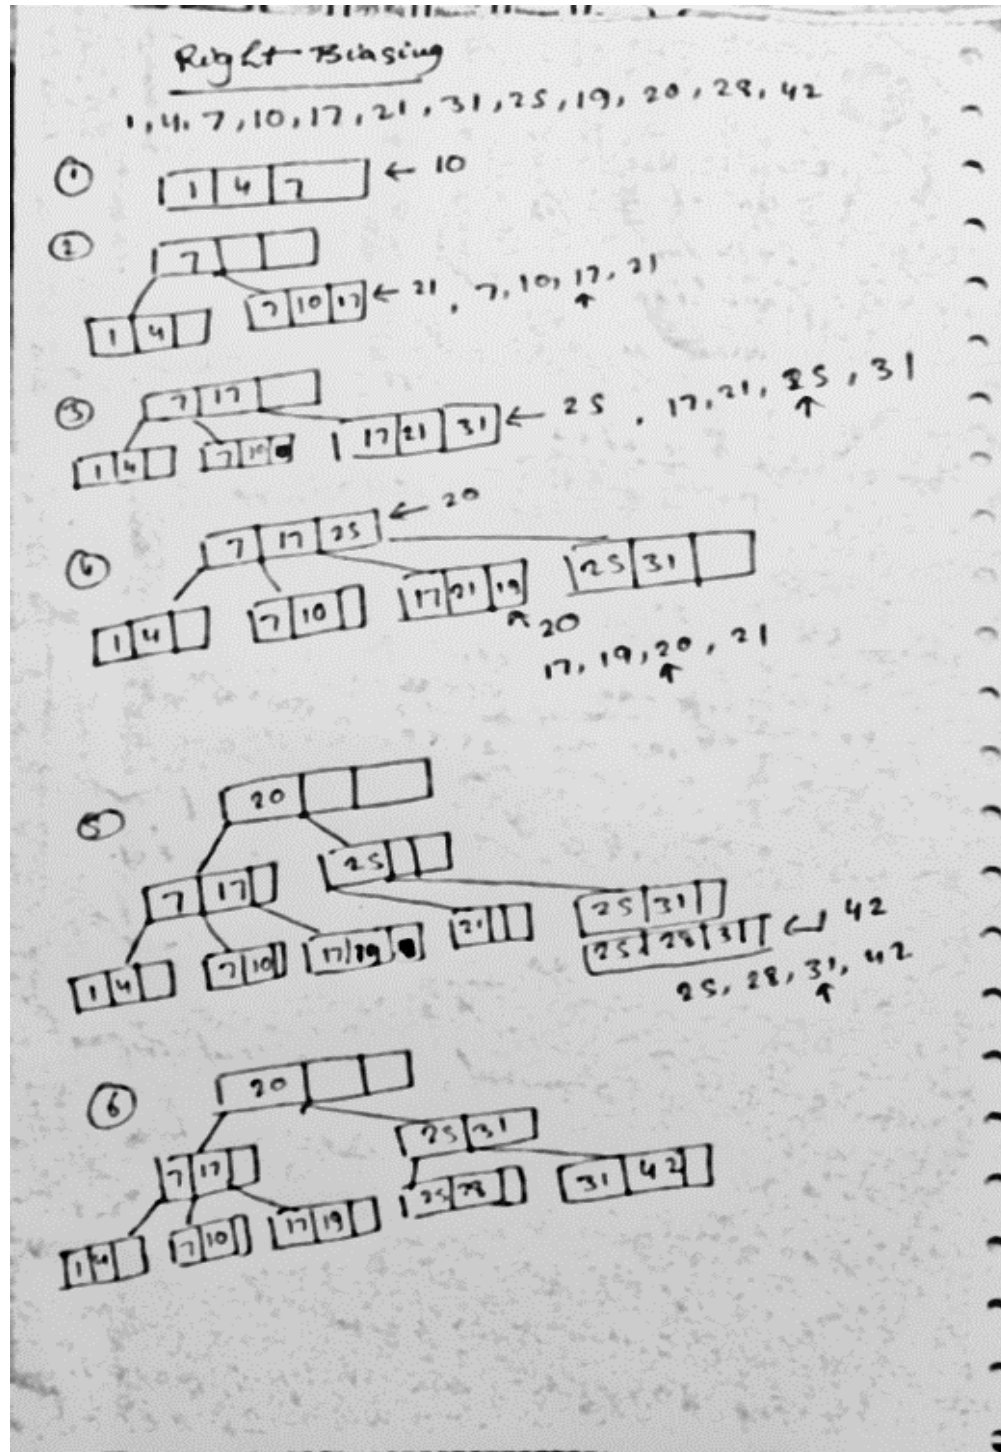 Right Biasing
1, 4, 7, 10, 17, 21, 31, 25, 19, 20, 28, 42
① 1 4 7 ← 10
② 7
1 4 7 10 17 ← 21 , 7, 10, 17, 21
↑
③ 7 17
1 4 7 10 17 21 31 ← 25 . 17, 21, 25, 31
↑
④ 7 17 25 ← 20
1 4 7 10 17 21 19 25 31
↖ 20
17, 19, 20, 21
↑
⑤ 20
7 17 25
1 4 7 10 17 19 21 25 31
25 28 31 ↵ 42
25, 28, 31, 42
↑
⑥ 20
7 17 25 31
1 4 7 10 17 19 25 28 31 42